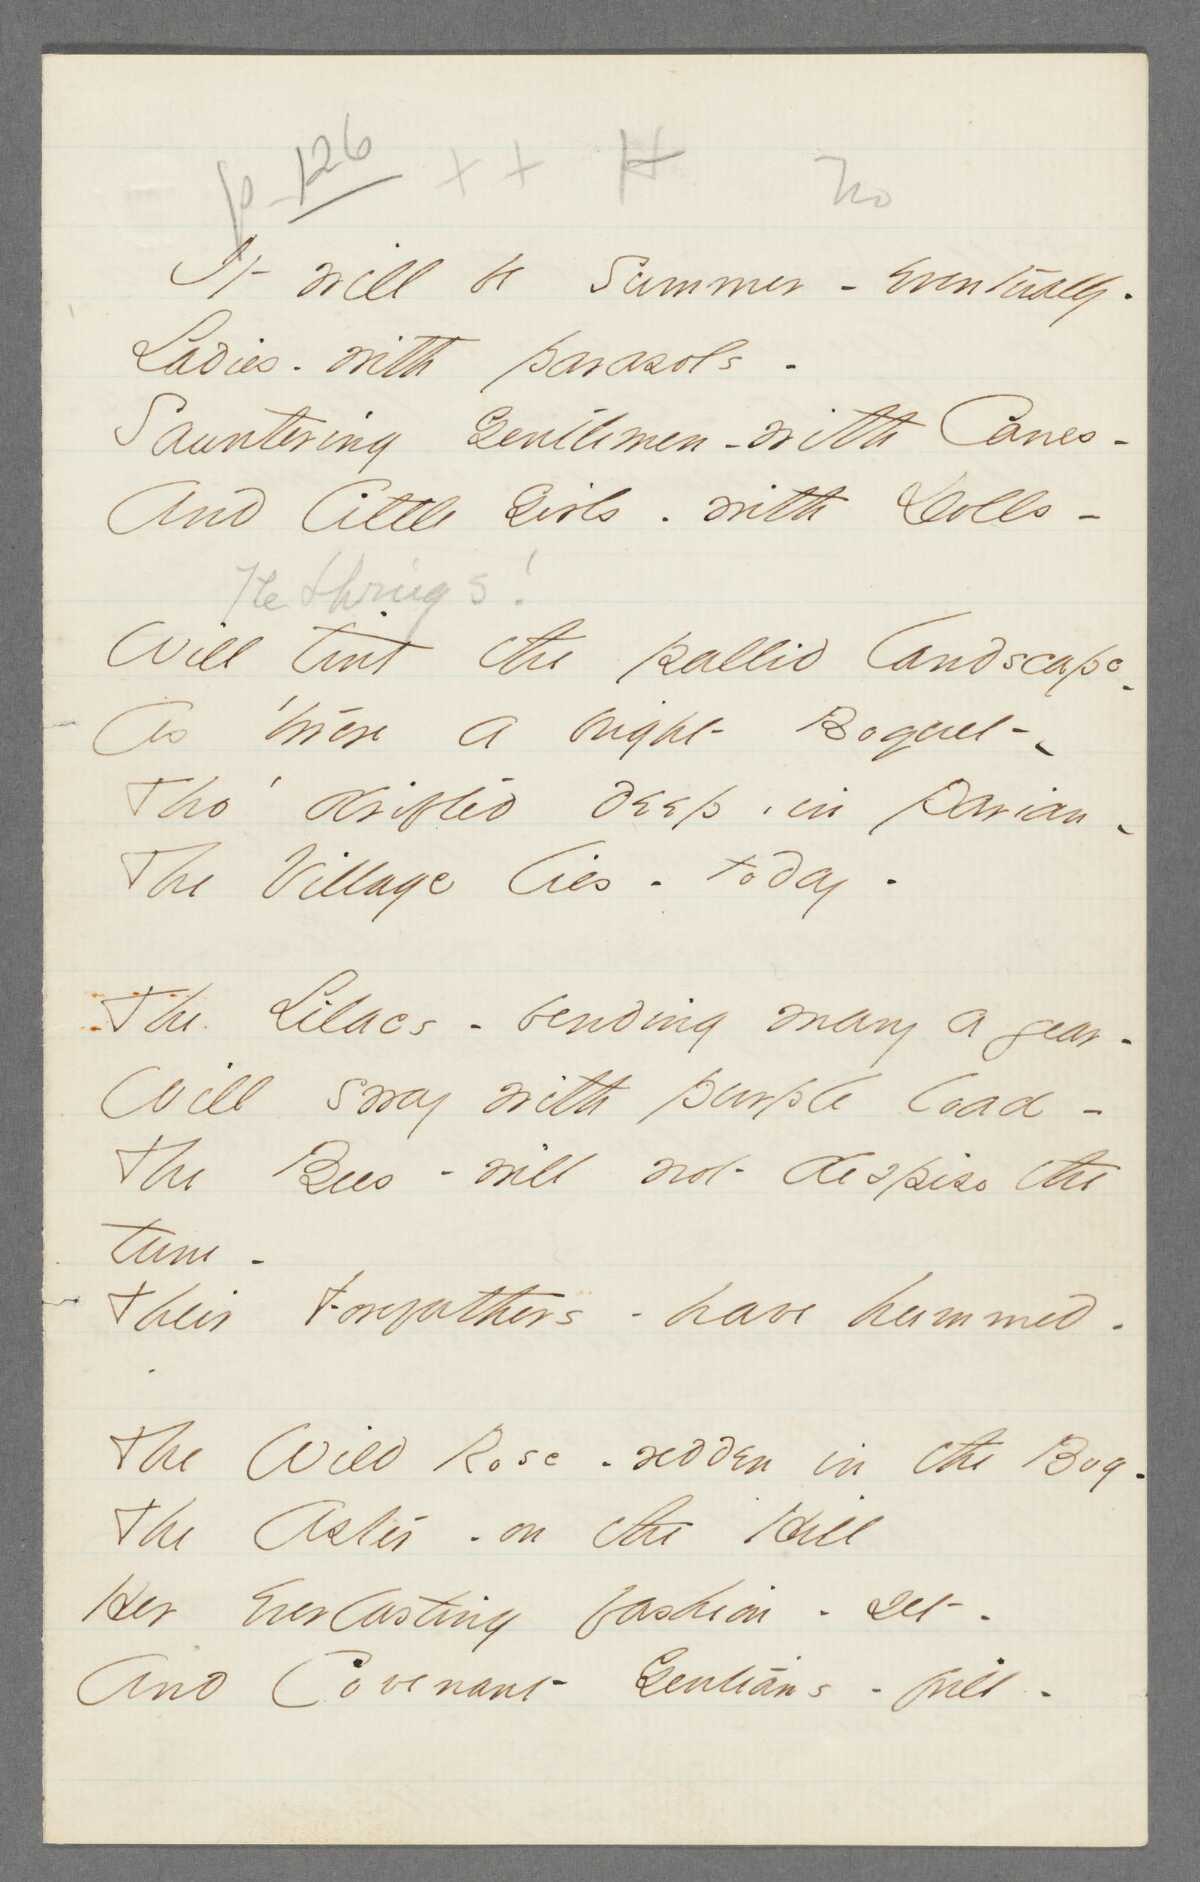 p-126 ++ H no
It will be Summer - eventually.
Ladies - with parasols -
Sauntering Gentlemen - with Canes -
And little Girls - with Dolls -
The things!
Will tint the pallid landscape -
As 'twere a bright Boquet -
Tho' drifted deep, in Parian -
The Village lies - today -
The Lilacs - bending many a year -
Will sway with purple load -
The Bees - will not despise the
tune -
Their Forefathers - have hummed -
The Wild Rose - redden in the Bog -
The Aster - on the Hill
Her Everlasting fashion - set -
And Covenant Gentians - frill -